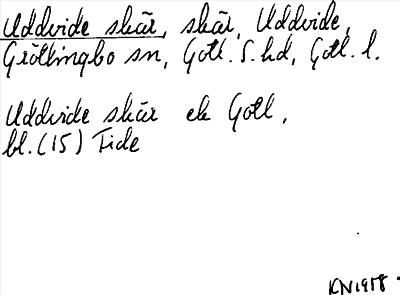 Uddvide skär, skär, Uddvide,
Grötlingbo sn, Gotl. S. hd, Gotl. l.
Uddvide skär ek Gotl,
bl. (15) Fide
KN 1978